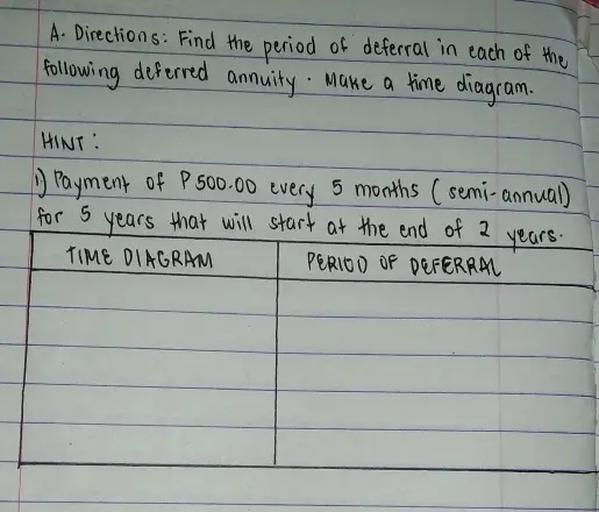 A. Directions: Find the period of deferral in each of the
following deferred annuity. Make a time diagram.
HINT:
1) Payment of P500.00 every 5 months (semi-annual)
for 5 years that will start at the end of 2 years.
TIME DIAGRAM
PERIOD OF DEFERRAL